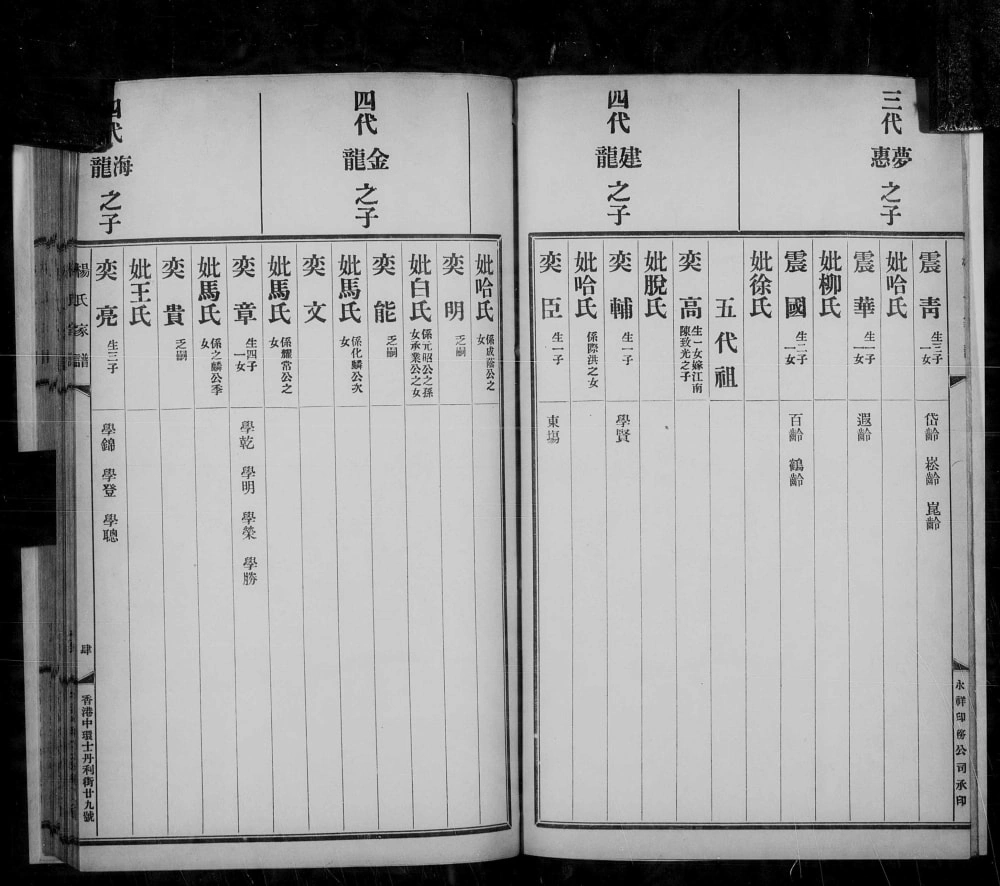 三代夢惠之子
震青 生三子一女 岱齡 崧齡 崑齡
妣哈氏
震華 生一子一女 遐齡
妣柳氏
震國 生二子一女 百齡 鶴齡
妣徐氏
五代祖
四代建龍之子
奕高 生一女嫁江南陳致光之子
妣脫氏
奕輔 生一子 學賢
妣哈氏 係際洪之女
奕臣 生一子 東塲
永祥印務公司承印
妣哈氏 係成藩公之女
四代金龍之子
奕明 乏嗣
妣白氏 係元昭公之孫女承業公之女
奕能 乏嗣
妣馬氏 係化麟公次女
奕文
妣馬氏 係耀常公之女
四代海龍之子
奕章 生四子一女 學乾 學明 學榮 學勝
妣馬氏 係之麟公季女
奕貴 乏嗣
妣王氏
奕亮 生三子 學錦 學登 學聰
楊氏家譜
肆
香港中環士丹利街廿九號